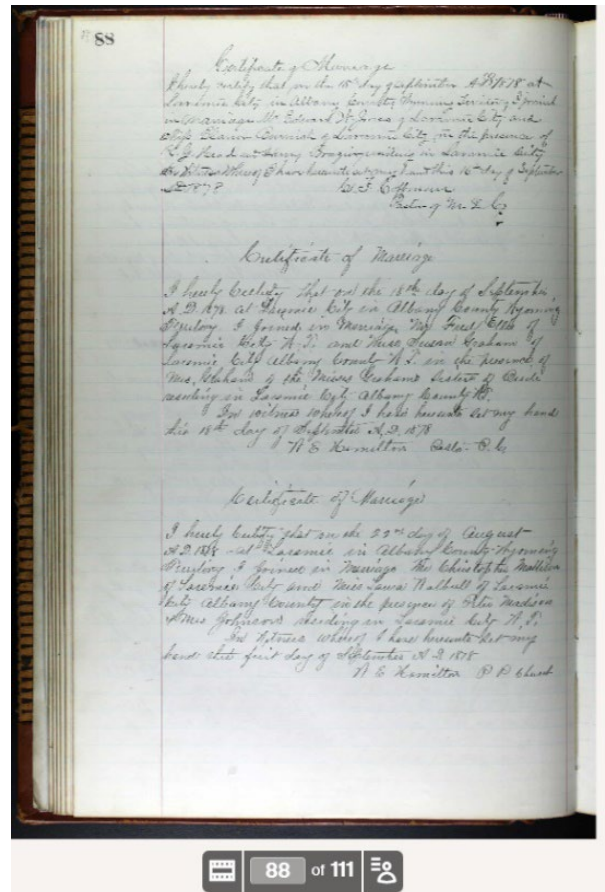 88
Certificate of Marriage
I hereby certify that on the 15th day of September A.D. 1878 at
Laramie City in Albany County Wyoming Territory I joined
in Marriage Mr Edward W. Jones of Laramie City and
Miss of Laramie City in the presence of
Head and residing in Laramie City
In Witness Whereof I have hereunto set my hand this day of September
A.D. 1878
Pastor of M. E. Ch
Certificate of Marriage
I hereby Certify that on the 18th day of September
A.D. 1878 at Laramie City in Albany County Wyoming
Territory I joined in Marriage Mr Fred of
Laramie City W.T. and Miss Susan Graham of
Laramie City Albany County W.T. in the presence of
Mrs. & the Misses Graham Sisters of Bride
residing in Laramie City Albany County W.T.
In witness whereof I have hereunto set my hand
this 18th day of September A.D. 1878
W E Hamilton
Certificate of Marriage
I hereby Certify that on the 22nd day of August
A.D. at Laramie in Albany County Wyoming
Territory I joined in Marriage Mr Christopher
of Laramie City and Miss of Laramie
City Albany County in the presence of Peter Madison
& Mrs Johnson residing in Laramie City W.T.
In Witness whereof I have hereunto set my
hand this first day of September A.D. 1878
W E Hamilton P P Church
88 of 111